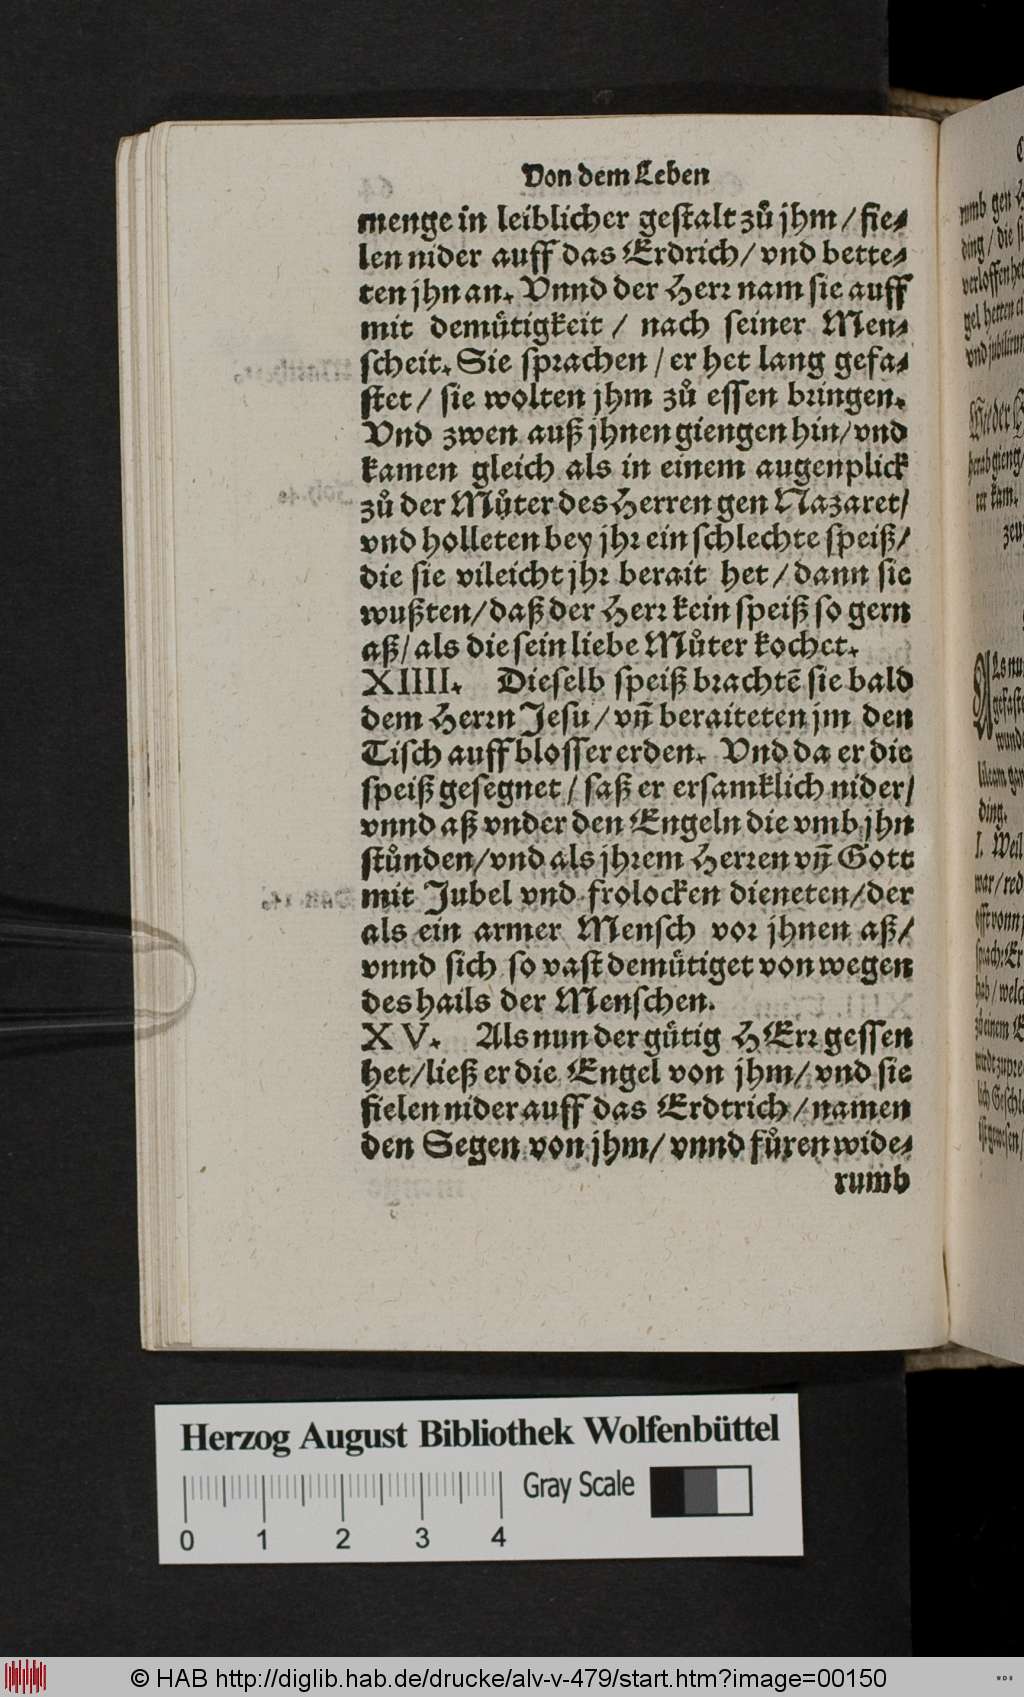 Von dem Leben
menge in leiblicher gestalt zuͦ jhm / fie⸗
len nider auff das Erdrich / vnd bette⸗
ten jhn an. Vnnd der Herr nam sie auff
mit demuͤtigkeit / nach seiner Men⸗
scheit. Sie sprachen / er het lang gefa⸗
stet / sie wolten jhm zuͦ essen bringen.
Vnd zwen auß jhnen giengen hin / vnd
kamen gleich als in einem augenplick
zuͦ der Muͦter des Herren gen Nazaret /
vnd holleten bey jhr ein schlechte speiß /
die sie vileicht jhr berait het / dann sie
wußten / daß der Herr kein speiß so gern
aß / als die sein liebe Muͦter kochet.
XIIII. Dieselb speiß brachtē sie bald
dem Herrn Jesu / vn̄ beraiteten jm den
Tisch auff blosser erden. Vnd da er die
speiß gesegnet / saß er ersamklich nider /
vnnd aß vnder den Engeln die vmb jhn
stuͦnden / vnd als jhrem Herren vn̄ Gott
mit Jubel vnd frolocken dieneten / der
als ein armer Mensch vor jhnen aß /
vnnd sich so vast demuͤtiget von wegen
des hails der Menschen.
XV. Als nun der guͤtig HErr gessen
het / ließ er die Engel von jhm / vnd sie
fielen nider auff das Erdtrich / namen
den Segen von jhm / vnnd fuͦren wide⸗
rumb
rumb gen
ding / die
gel herren
herab gieng /
ter kam.
zeu
Als nu
gefaste
wund
ding.
I. Weil
war / red
offt vonn
sprach: Er
hab / welch
Herzog August Bibliothek Wolfenbüttel
Gray Scale
0 1 2 3 4
© HAB http://diglib.hab.de/drucke/alv-v-479/start.htm?image=00150